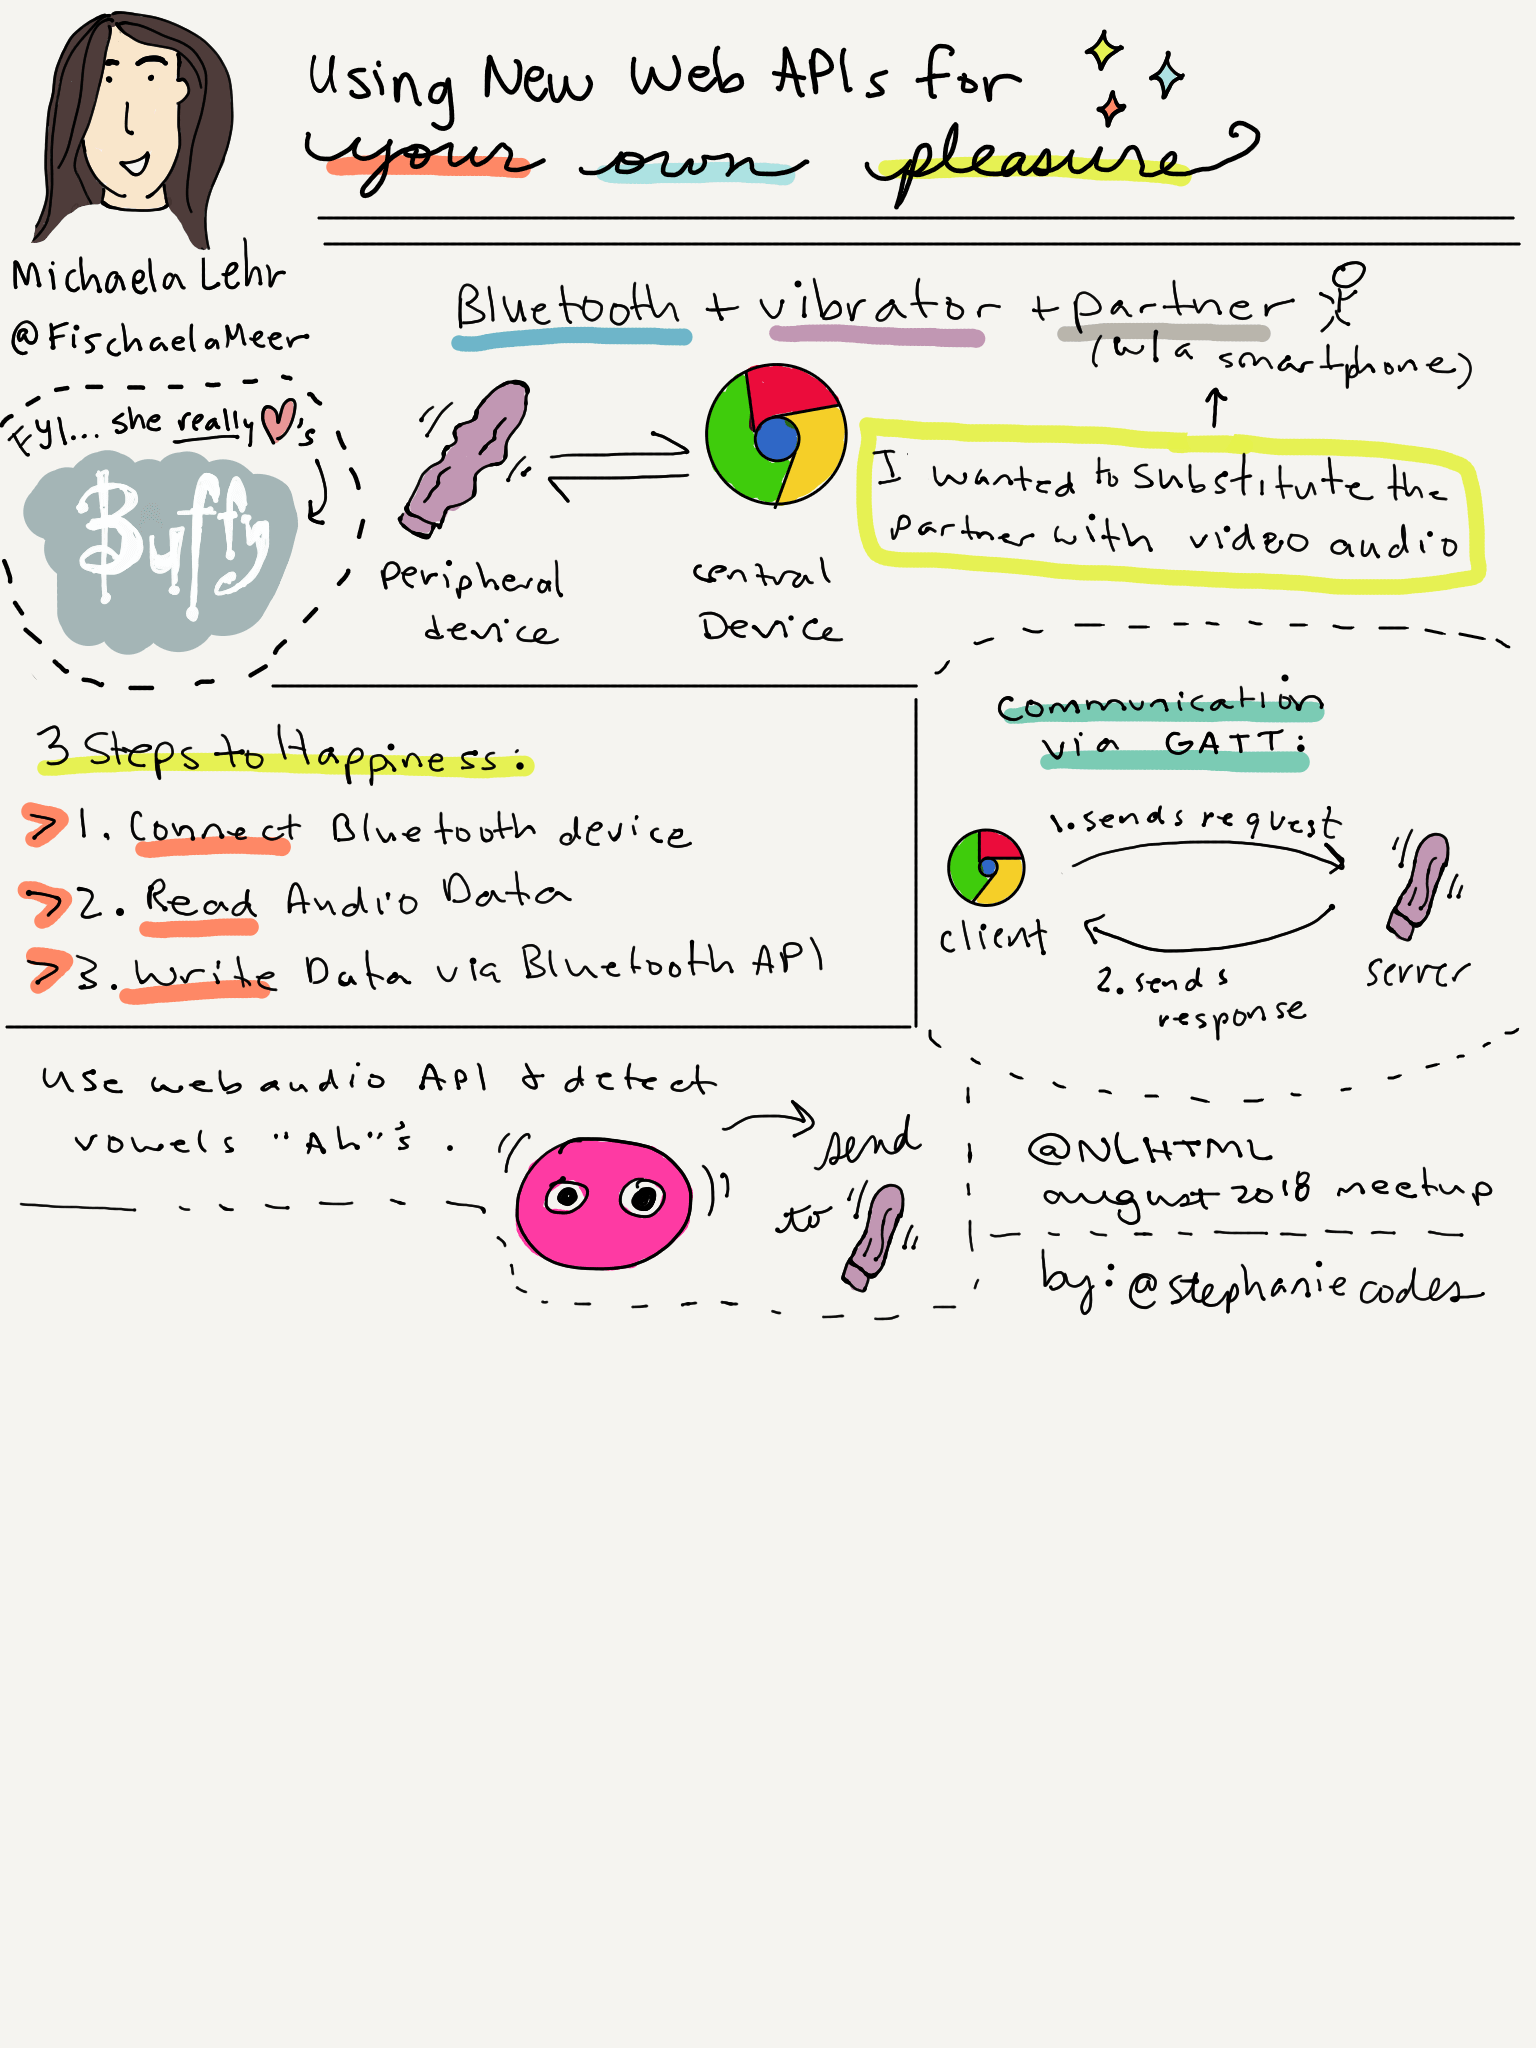 Using New Web APIs for
your own pleasure
Michaela Lehr
@FischaelaMeer
FYI... she really ♥'s
Buffy
Bluetooth + vibrator + partner
(w/ a smartphone)
I wanted to substitute the
partner with video audio
peripheral
device
central
Device
3 Steps to Happiness:
1. Connect Bluetooth device
2. Read Audio Data
3. Write Data via Bluetooth API
communication
via GATT:
1. sends request
client
server
2. sends
response
use web audio API & detect
vowels "Ah"'s.
send
to
@NLHTML
august 2018 meetup
by: @stephaniecodes